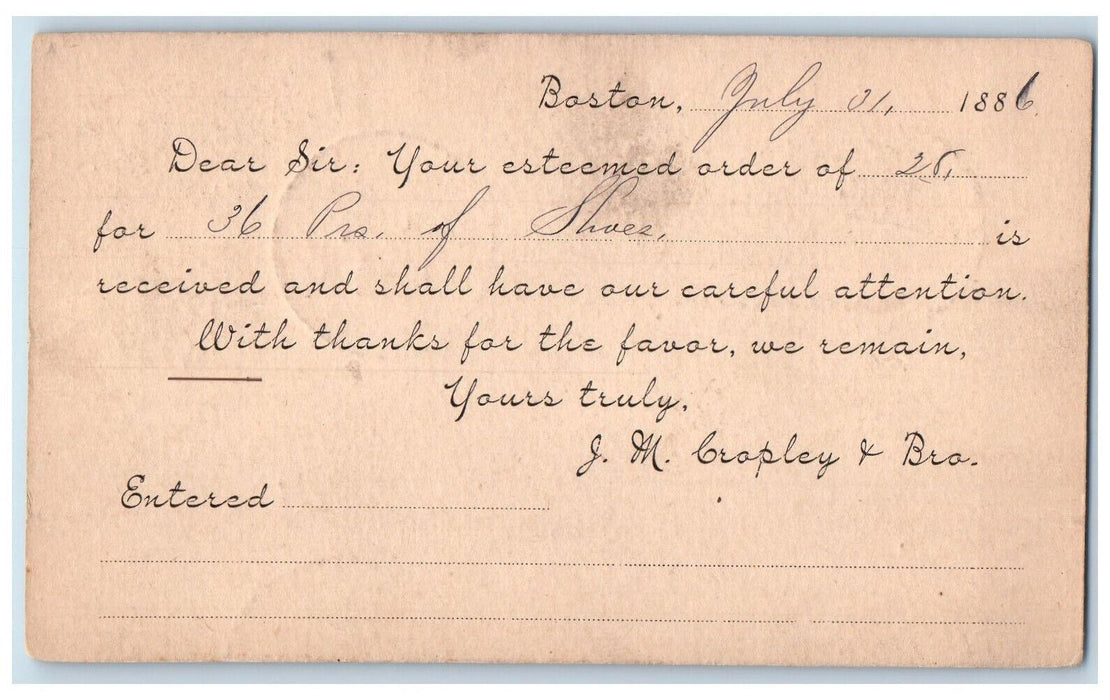 Boston, July 31, 1886.
Dear Sir: Your esteemed order of
for 36 Prs. of Shoes, is
received and shall have our careful attention.
With thanks for the favor, we remain,
Yours truly,
J. M. Cropley & Bro.
Entered